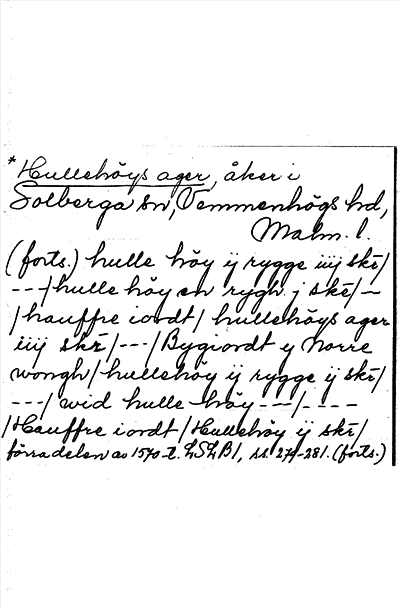 *Hullehöys ager, åker i
Solberga sn, Vemmenhögs hd,
Malm. l.
(forts.) hulle höy ij rygge iiij skē/
---/hulle höy en rygh j skē/—
/hauffre iordt/ hullehöys ager
iiij skē/---/Bygiordt y norre
wongh/hullehöy ij rygge ij skē/
---/wid hulle höy ---/----
/Hauffre iordt/Hullehöy ij skē/
förra delen av 1570-t. LSLB1, ss. 274-281. (forts.)